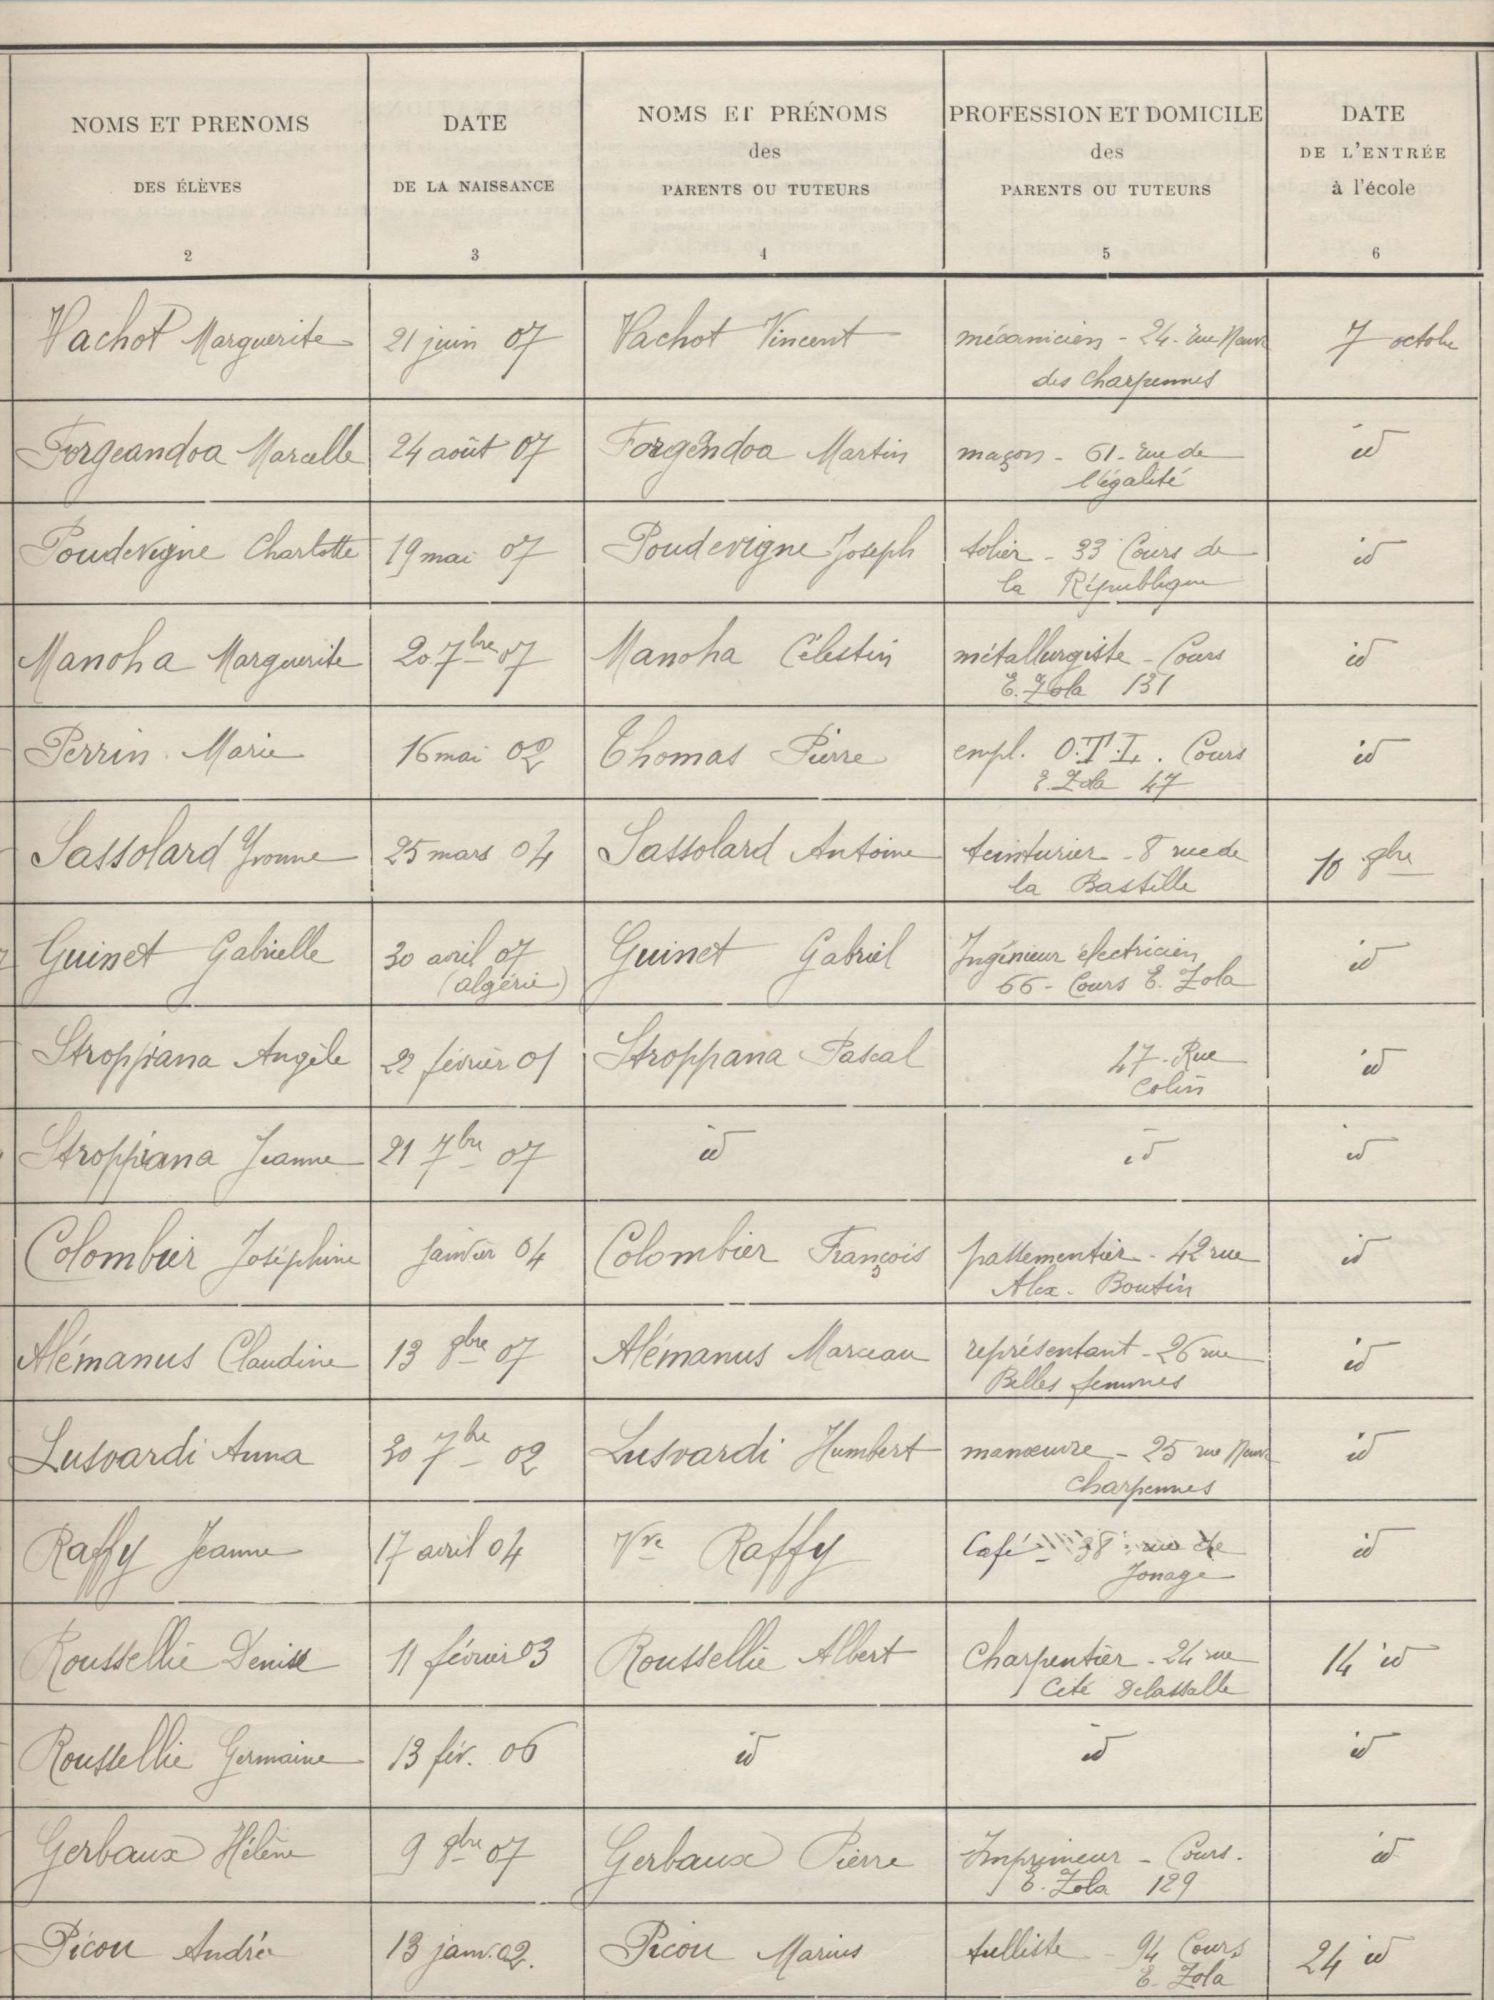 NOMS ET PRENOMS
DES ÉLÈVES
2
DATE
DE LA NAISSANCE
3
NOMS ET PRÉNOMS
des
PARENTS OU TUTEURS
4
PROFESSION ET DOMICILE
des
PARENTS OU TUTEURS
5
DATE
DE L'ENTRÉE
à l'école
6
Vachot Marguerite 21 juin 07 Vachot Vincent mécanicien - 24 - rue Neuve 7 octobre
des Charpennes
Forgeandoa Marcelle 24 août 07 Forgendoa Martin maçon - 61 - rue de id
l'égalité
Poudevigne Charlotte 19 mai 07 Poudevigne Joseph tolier - 33 Cours de id
la République
Manoha Marguerite 20 7bre 07 Manoha Célestin métallurgiste - Cours id
E. Zola 131
Perrin Marie 16 mai 02 Thomas Pierre empl. O.T.L. Cours id
E. Zola 47
Sassolard Yvonne 25 mars 04 Sassolard Antoine teinturier - 8 rue de 10 8bre
la Bastille
Guinet Gabrielle 30 avril 07 Guinet Gabriel Ingénieur électricien id
(algérie) 66 - Cours E. Zola
Stroppiana Angèle 22 février 01 Stroppana Pascal 47 - Rue id
Colin
Stroppiana Jeanne 21 7bre 07 id id id
Colombier Joséphine Janvier 04 Colombier François passementier - 42 rue id
Alex. Boutin
Alémanus Claudine 13 8bre 07 Alémanus Marceau représentant - 26 rue id
Belles femmes
Lusvardi Anna 30 7bre 02 Lusvardi Humbert manœuvre - 25 rue Neuve id
Charpennes
Raffy Jeanne 17 avril 04 Vve Raffy Café - 38 rue de id
Jonage
Roussellie Denise 11 février 03 Roussellie Albert Charpentier - 24 rue 14 id
Cité Delassalle
Roussellie Germaine 13 fév. 06 id id id
Gerbaux Hélène 9 8bre 07 Gerbaux Pierre Imprimeur - Cours. id
E. Zola 129
Picou Andrée 13 janv. 02. Picou Marius tulliste - 94 Cours 24 id
E. Zola